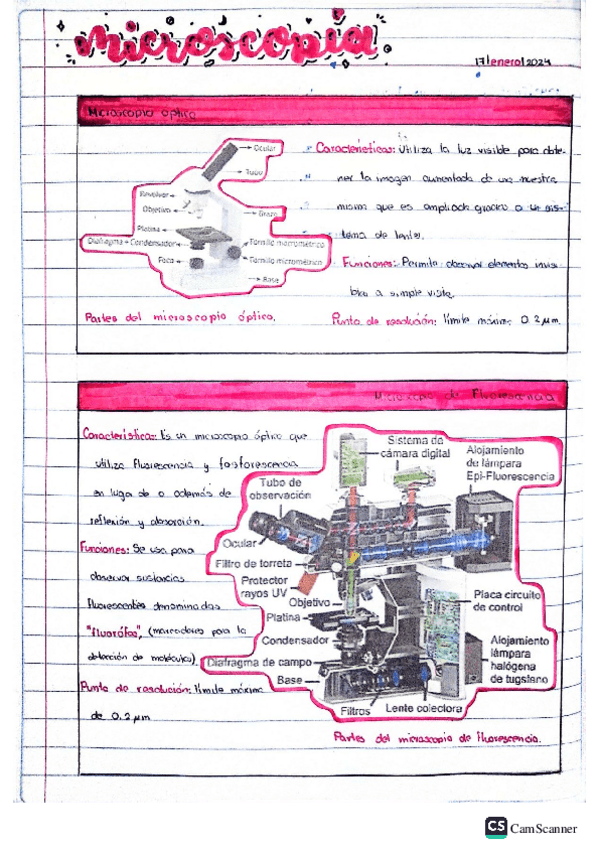 microscopía
17/enero/2024
Microscopio óptico
Ocular
Tubo
Revolver
Objetivo
Brazo
Platina
Diafragma + Condensador
Tornillo macrométrico
Tornillo micrométrico
Foco
Base
Partes del microscopio óptico.
Características: Utiliza la luz visible para obte-
ner la imagen aumentada de una muestra
misma que es ampliada gracias a un sis-
tema de lentes.
Funciones: Permite observar elementos invisi-
bles a simple vista.
Punto de resolución: límite máximo 0.2 µm.
Microscopio de Fluorescencia
Características: Es un microscopio óptico que
utiliza fluorescencia y fosforescencia
en lugar de o además de
reflexión y absorción.
Funciones: Se usa para
observar sustancias
fluorescentes denominadas
"fluoróforos", (marcadores para la
detección de moléculas).
Punto de resolución: límite máximo
de 0.2 µm
Sistema de
cámara digital
Alojamiento
de lámpara
Epi-Fluorescencia
Tubo de
observación
Ocular
Filtro de torreta
Protector
rayos UV
Objetivo
Platina
Condensador
Diafragma de campo
Base
Filtros
Lente colectora
Placa circuito
de control
Alojamiento
lámpara
halógena
de tugsteno
Partes del microscopio de fluorescencia.
CS CamScanner